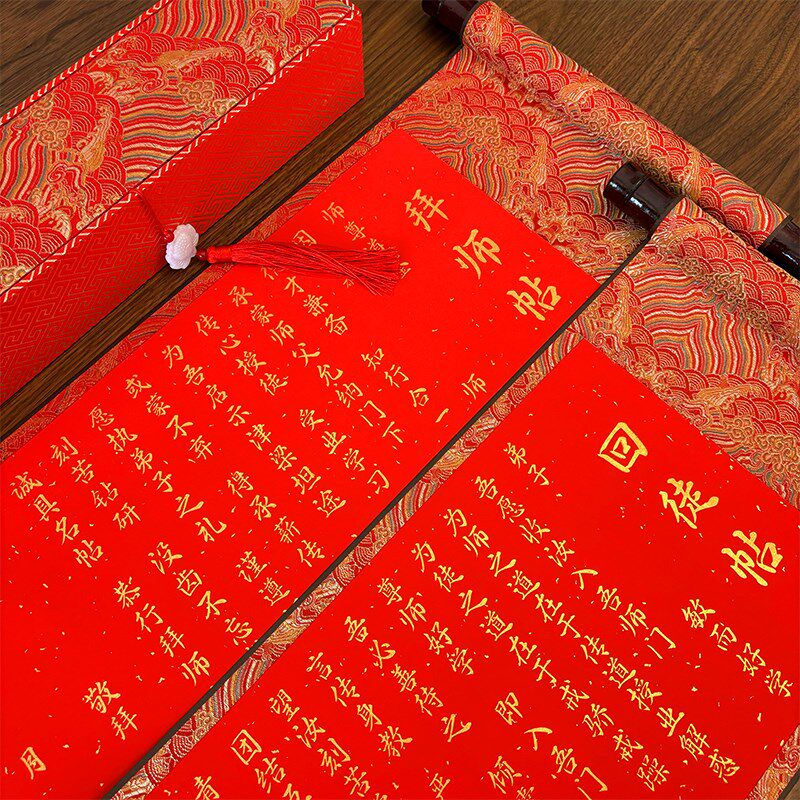 拜师帖
师尊道
师
才兼备 知行合一
承蒙师父允纳门下
传心授徒 受业学习
为吾启示津梁坦途
或蒙不弃 得承薪传
愿执弟子之礼 谨遵
刻苦钻研 没齿不忘
诚具名帖 恭行拜师
敬拜
月
回徒帖
敏而好学
弟子
吾愿收汝 入吾师门
为师之道在于传道授业解惑
为徒之道在于戒骄戒躁
尊师好学 即入吾门
吾必善待之 倾
言传身教 严
望汝刻苦
团结
青